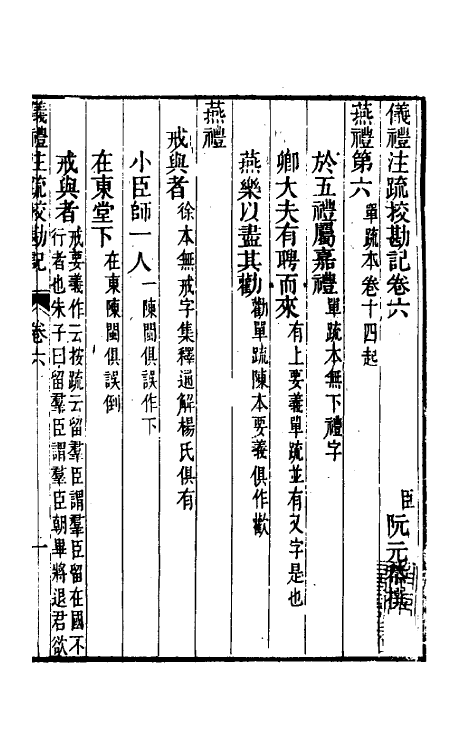 儀禮注疏挍勘記卷六
臣阮元恭撰
燕禮第六單疏本卷十四起
於五禮屬嘉禮單疏本無下禮字
卿大夫有聘而來有上要義單疏並有又字是也
燕樂以盡其勸勸單疏陳本要義俱作歡
燕禮
戒與者徐本無戒字集釋通解楊氏俱有
小臣師一人一陳閩俱誤作下
在東堂下在東陳閩俱誤倒
戒與者戒要義作云按疏云留羣臣謂羣臣留在國不
行者也朱子曰留羣臣謂羣臣朝畢將退君欲
儀禮注疏挍勘記
卷六
一